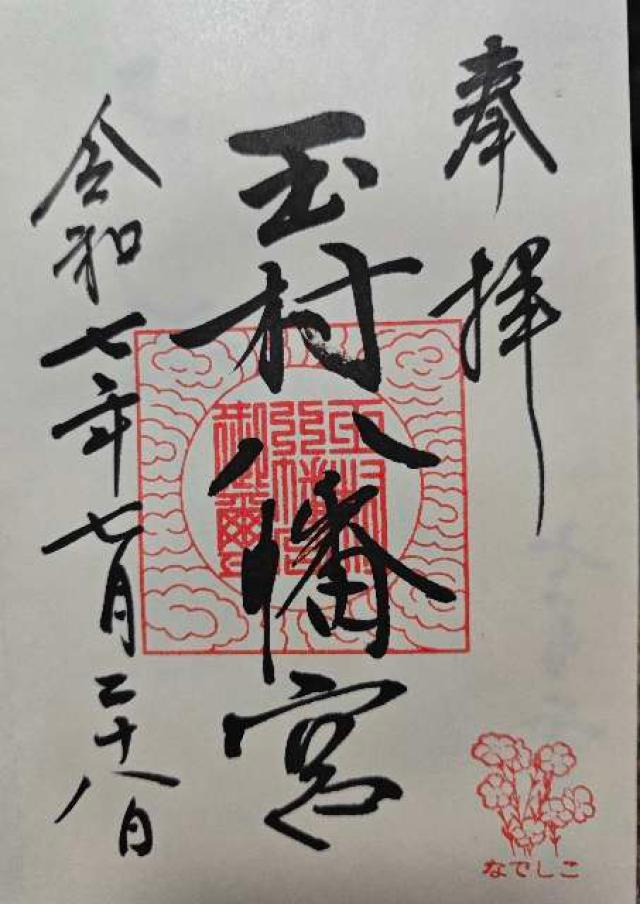 奉拝
玉村八幡宮
令和七年七月二十八日
なでしこ